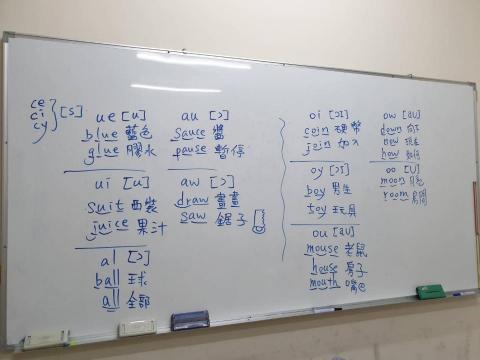 ce
ci
cy
[s]
ue [u]
blue 藍色
glue 膠水
ui [u]
suit 西裝
juice 果汁
al [ɔ]
ball 球
all 全部
au [ɔ]
sauce 醬
pause 暫停
aw [ɔ]
draw 畫畫
saw 鋸子
oi [ɔɪ]
coin 硬幣
join 加入
oy [ɔɪ]
boy 男生
toy 玩具
ou [aU]
mouse 老鼠
house 房子
mouth 嘴巴
ow [aU]
down 向下
now 現在
how 如何
oo [U]
moon 月亮
room 房間